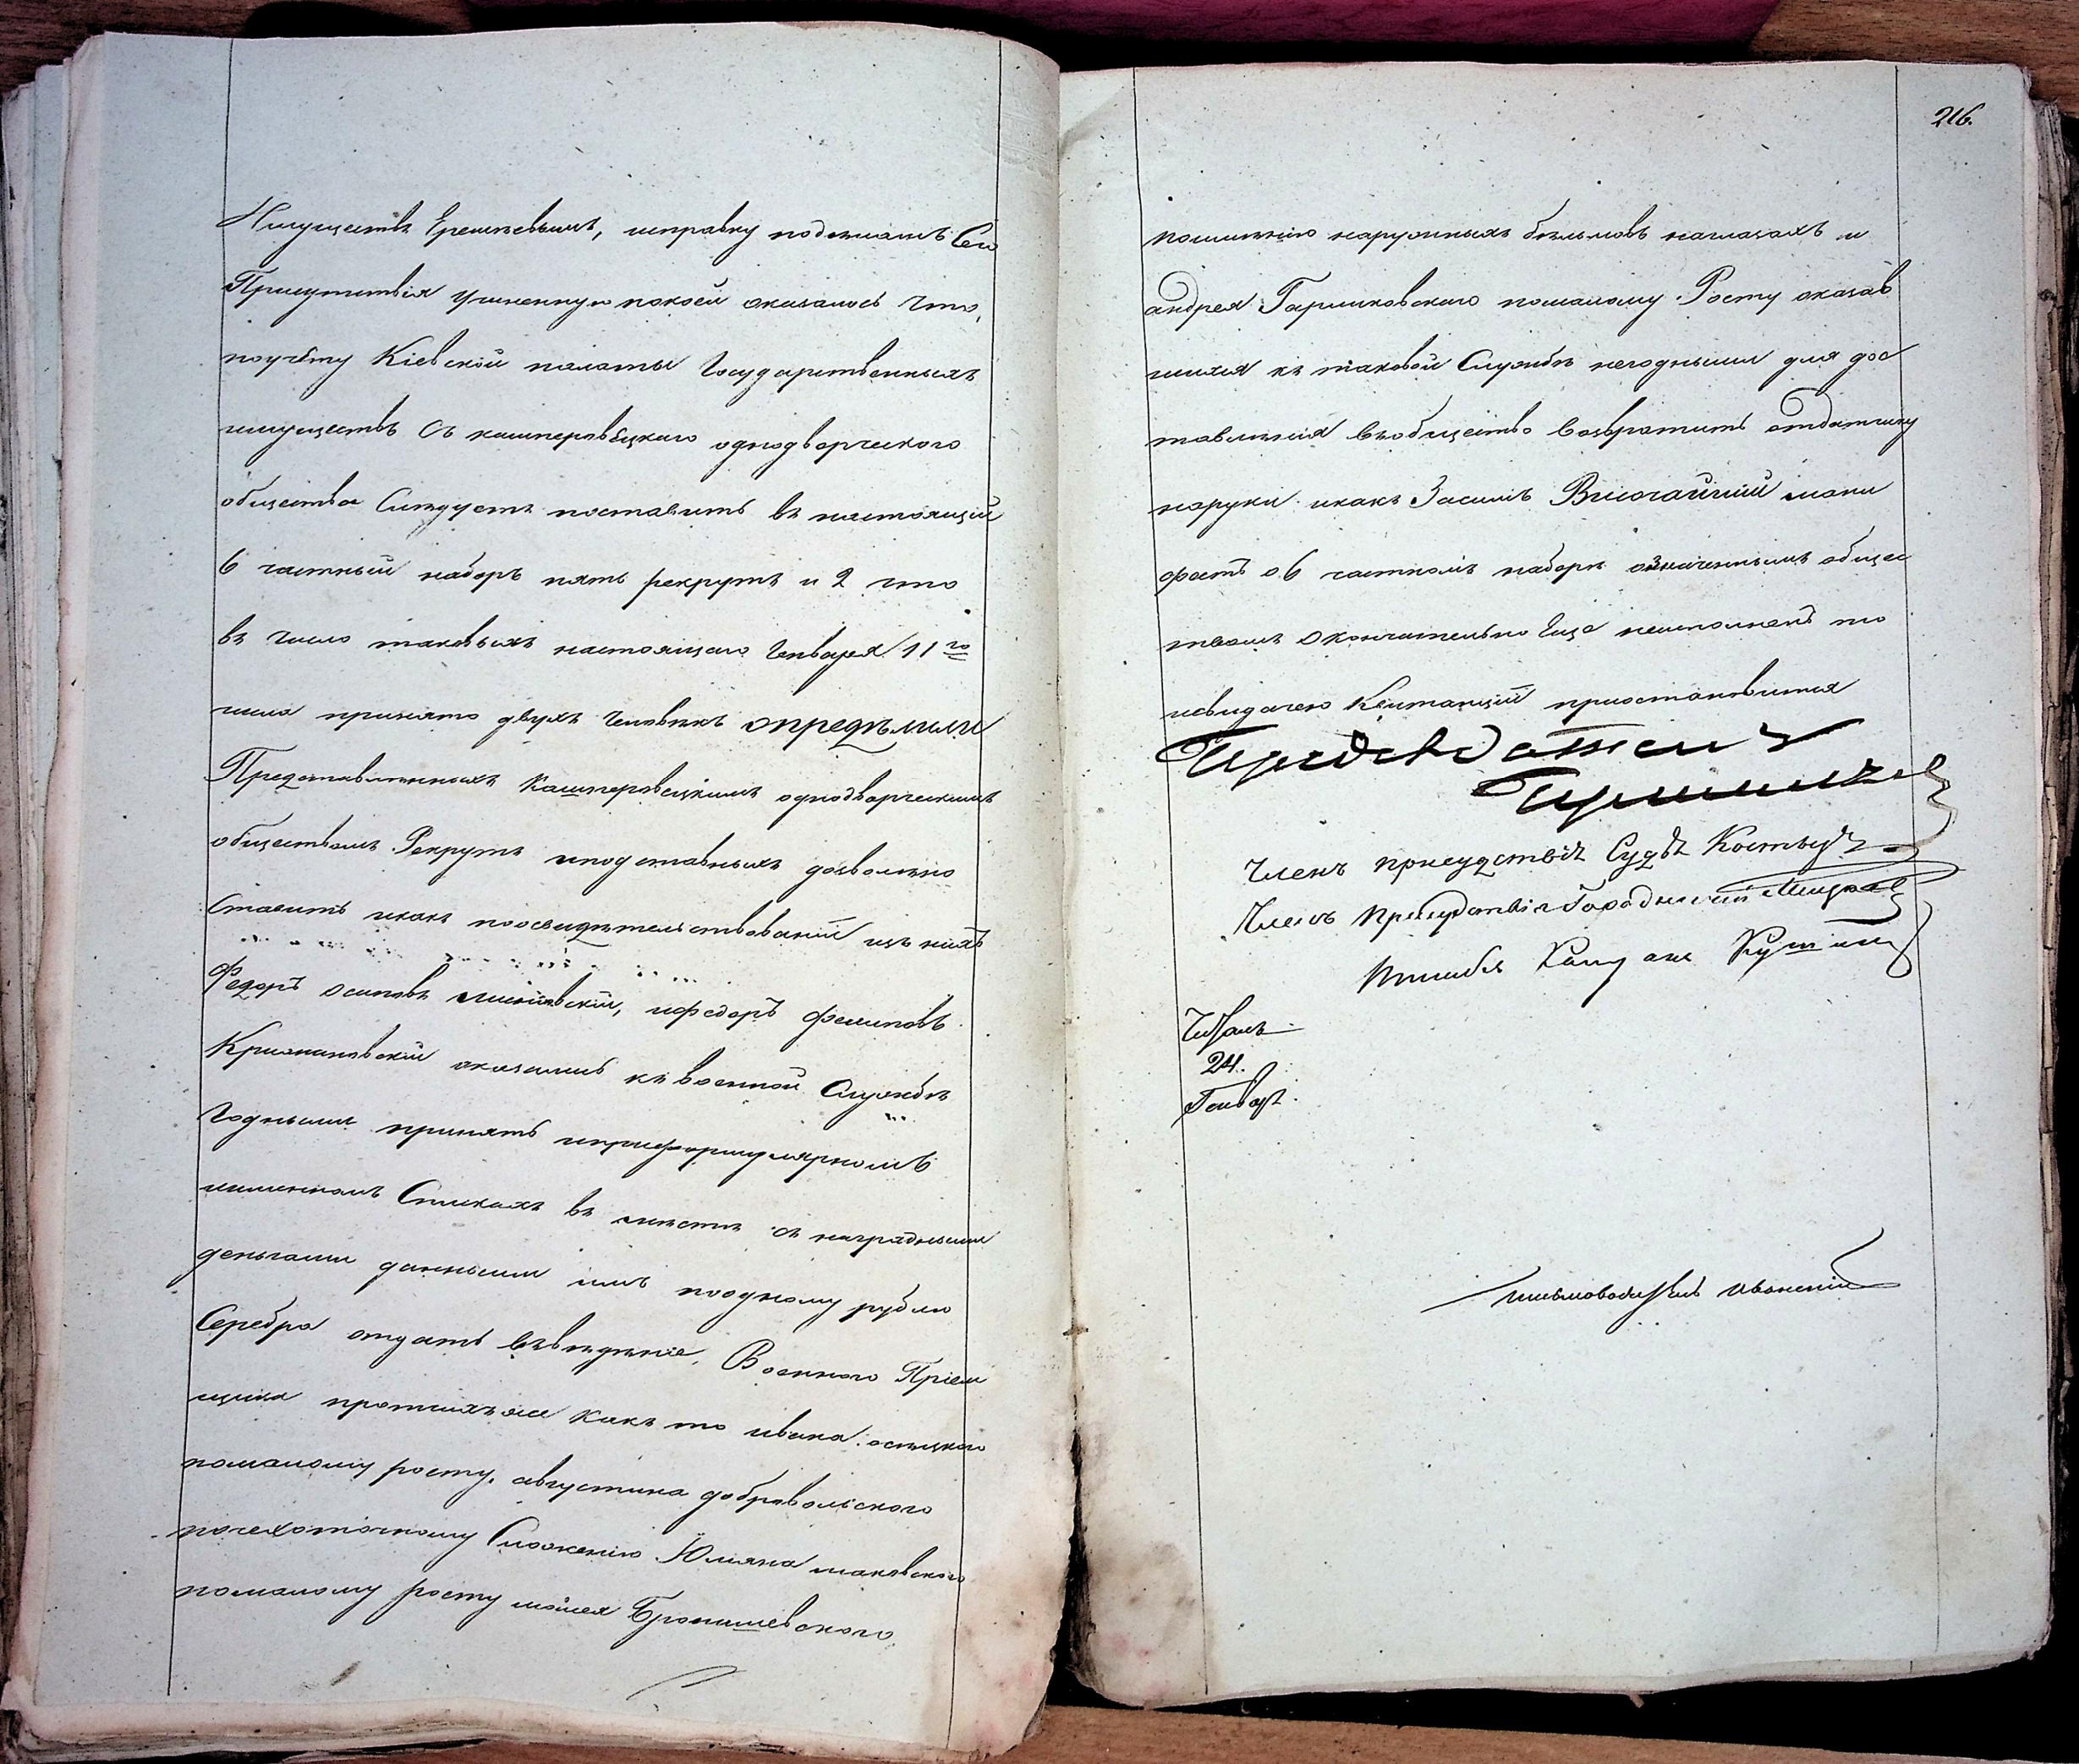 Имуществъ Ерем​ѣевымъ, исправку поделамъ Сего
Присутствія учиненную коей оказалось что,
поучёту Кіевской палаты Государственныхъ
имуществъ Съ кашперовецкаго однодворческого
общества Слѣдуетъ поставить въ настоящій
6 частный наборъ пять рекрутъ и 2 что
въ число таковыхъ настоящаго Генваря 11го
числа принято двухъ человѣкъ опредѣлили
Представленныхъ Кашперовецкимъ однодворческимъ
обществомъ Рекрутъ и подставныхъ дозволено
Ставить икакъ поосвидѣтельствованіи изъ нихъ
Федоръ Осиповъ, ифедоръ Филиповъ
Крижановскій оказались къ военной Службѣ
Годными принять иприформулярномъ
именномъ Спискахъ въ мѣсте съ наградными
деньгами данными имъ поодному рублю
Серебра отдать въвѣденіе, Военного Пріем
щика протчихъ же какъ то ивана осецкого
помалому росту, августина добровольского
почехоточному Сложенію Юлияна маковского
помалому росту Бронишевского
216.
поимѣнію наружныхъ бѣльмовъ наглазахъ и
андрея Гариковского помалому Росту оказав
шихся къ таковой Службѣ негодными для дос
тавленія въобщество возвратить отдатчику
наруки икакъ Засимъ мани
фестъ о 6 частномъ наборѣ означеннымъ общес
твомъ окончательно Еще неисполненъ то
исвидачею Квитанций приостановится
Предсѣдатель
Членъ присудствія Судья
Членъ Присудствія Городничій
Читалъ
24.
Генваря
письмоводитель